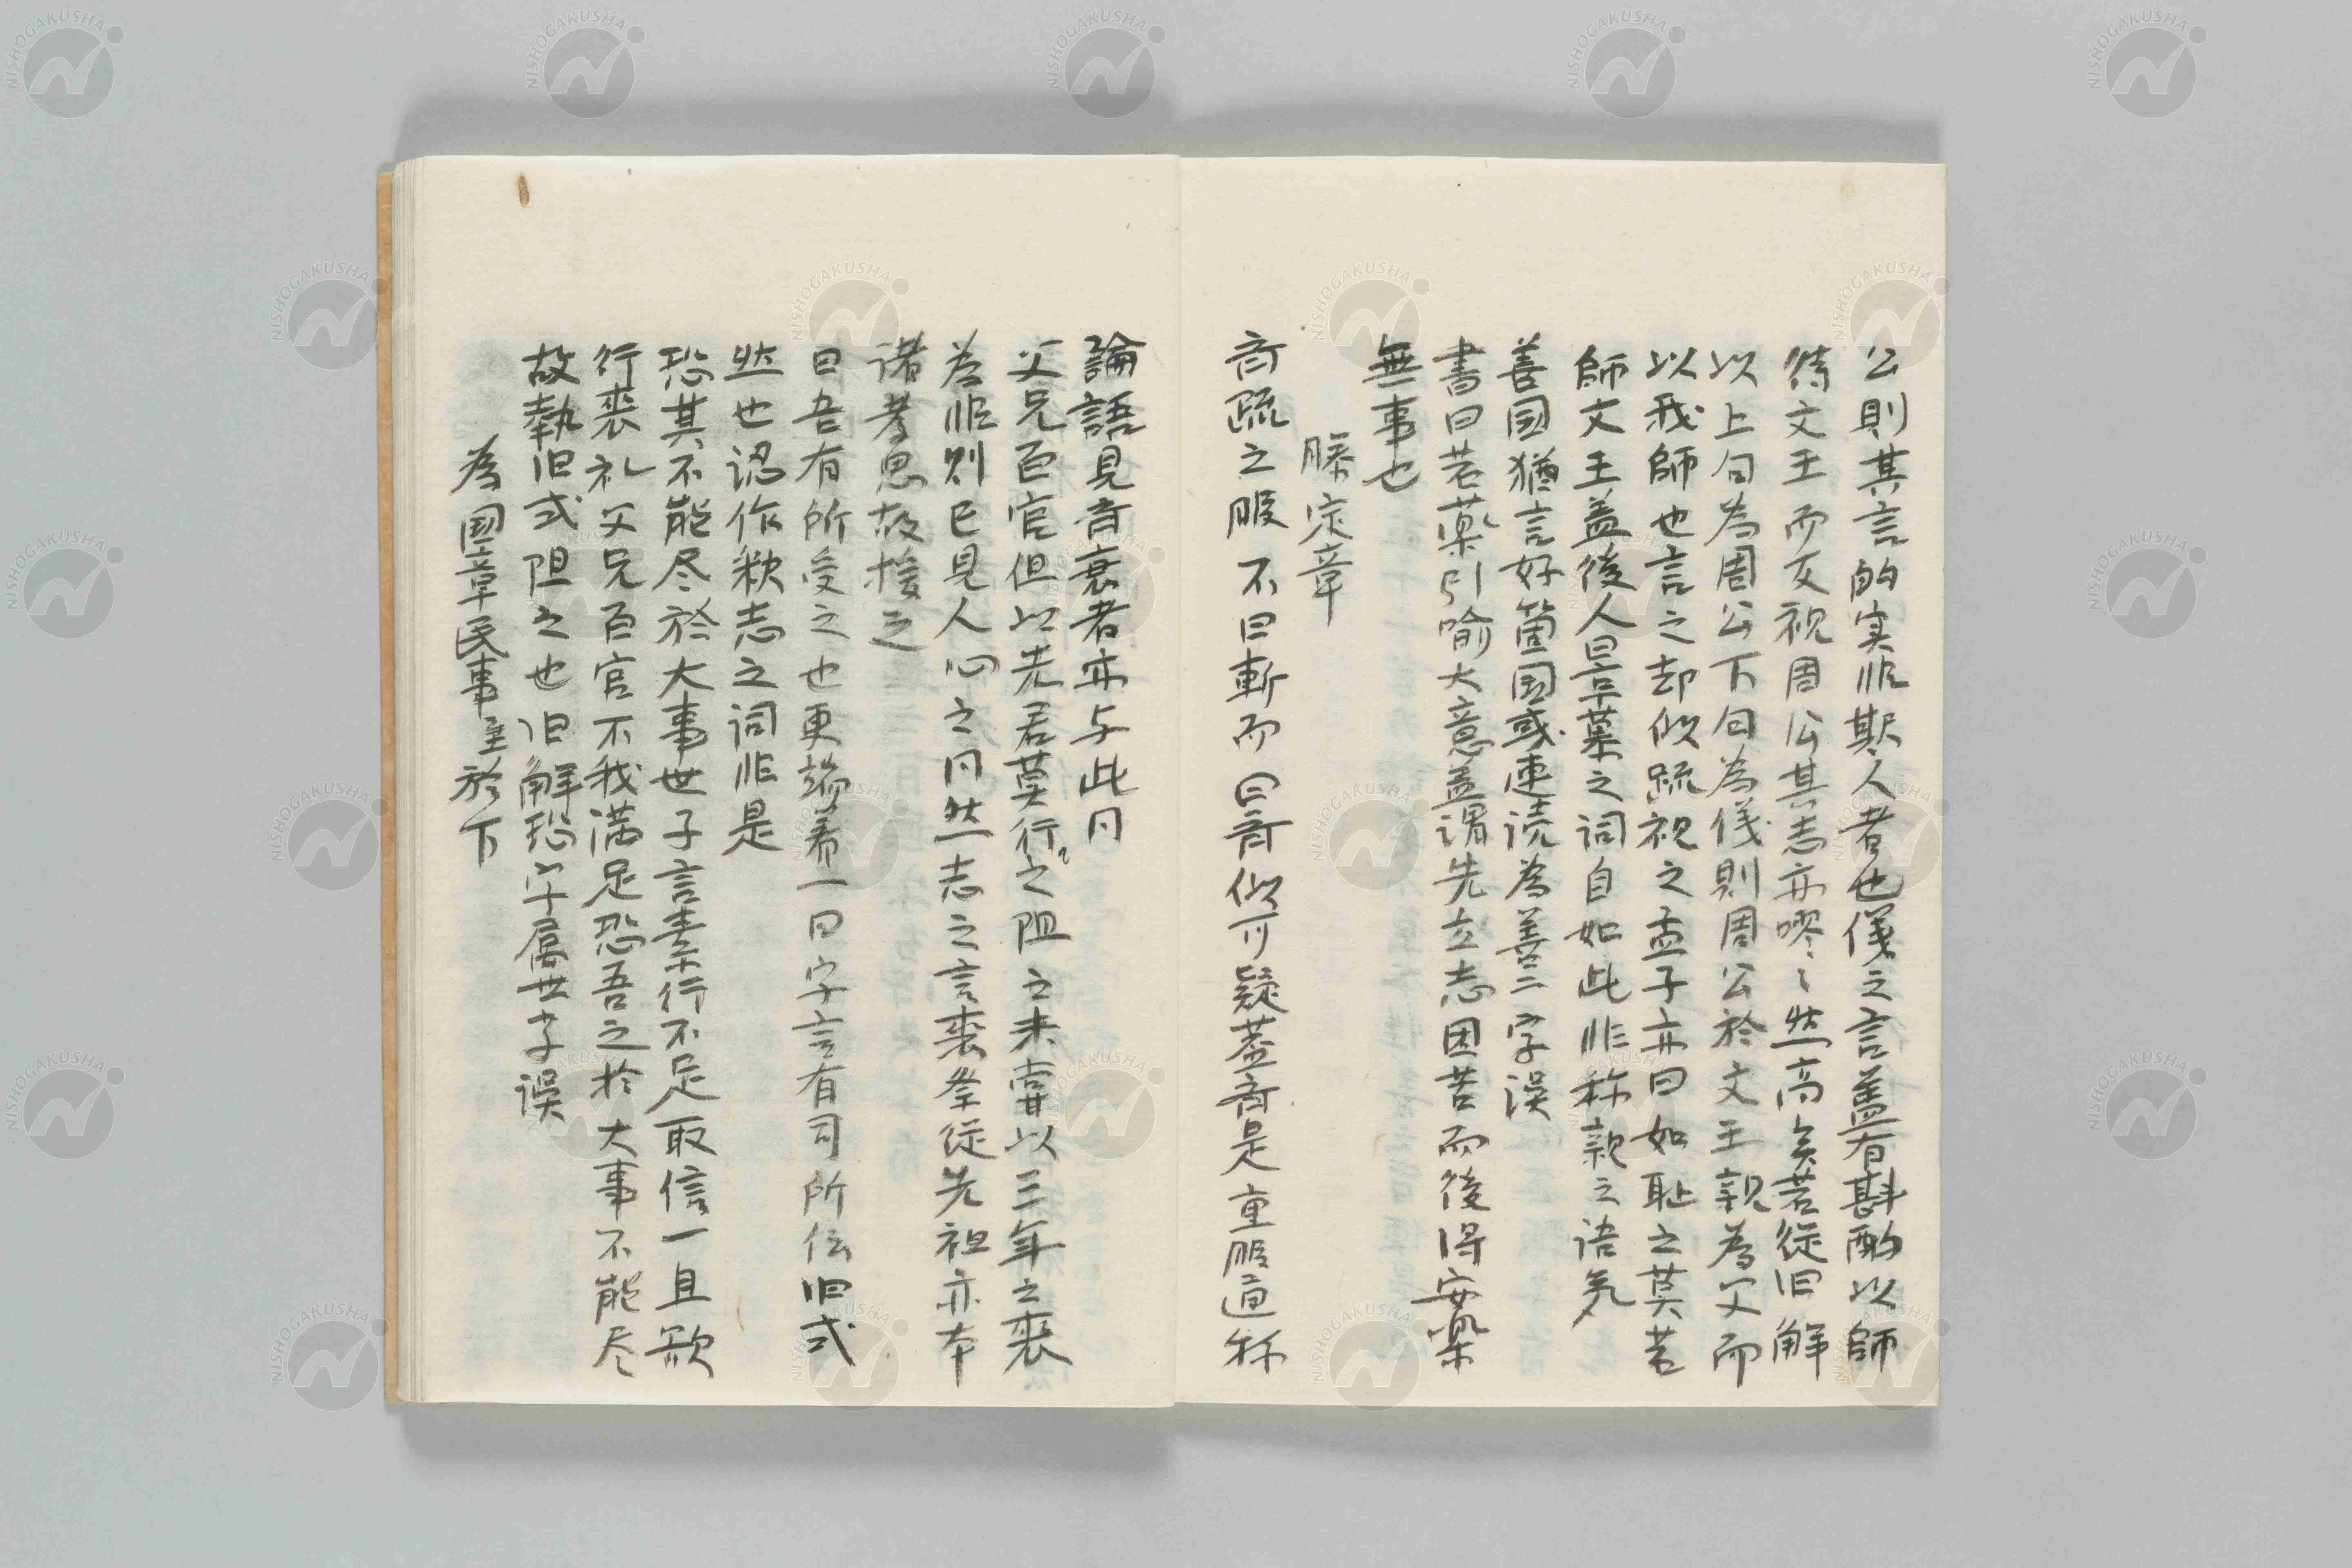 公則其言的実非欺人者也儀之言盖有斟酌以師
待文王而友視周公其志亦嘐〻然高矣若従旧解
以上句為周公下句為儀則周公於文王親為父而
以我師也言之却似疏視之孟子亦曰如恥之莫若
師文王盖後人景慕之詞自如此非称親之語気
善国猶言好箇国或連読為善三字誤
書曰若薬引喩大意盖謂先立志困苦而後得安楽
無事也
滕定章
斉疏之服不曰斬而曰斉似可疑盖斉是重服通称
論語見斉衰者亦与此同
父兄百官但以先君莫行之阻之未嘗以三年之喪
為非則已見人心之同然志之言喪祭従先祖亦本
諸孝思故援之
曰吾有所受之也更端著一曰字言有司所伝旧式
然也認作釈志之詞非是
恐其不能尽於大事世子言素行不足取信一旦欲
行喪礼父兄百官不我満足恐吾之於大事不能尽
故執旧式阻之也旧解恐字属世子誤
為國章民事至於下